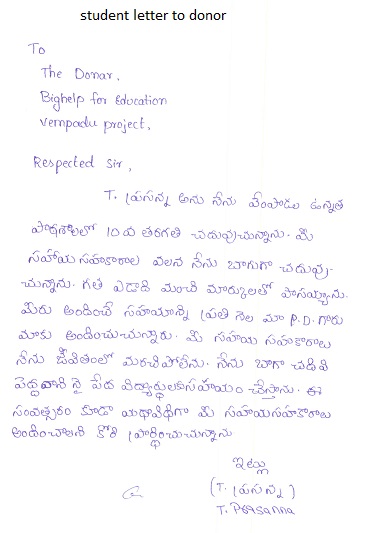 student letter to donor
To
The Donar,
Bighelp for Education
Vempadu project,
Respected Sir,
T. ప్రసన్న అను నేను వేంపాడు ఉన్నత
పాఠశాలలో 10వ తరగతి చదువుచున్నాను. మీ
సహాయ సహకారాల వలన నేను బాగుగా చదువు-
చున్నాను. గత ఏడాది మంచి మార్కులతో పాసయ్యాను.
మీరు అందించే సహయాన్ని ప్రతి నెల మా P.D. గారు
మాకు అందించుచున్నారు. మీ సహయ సహకారాలు
నేను జీవితంలో మరచిపోలేను. నేను బాగా చదివి
పెద్దవాని నై పేద విద్యార్థులకుసహయం చేస్తాను. ఈ
సంవత్సరం కూడా యథావిధిగా మీ సహాయసహకారాలు
అందించాలని కోరి ప్రార్థించుచున్నాను
ఇట్లు
(T. ప్రసన్న)
T. Prasanna